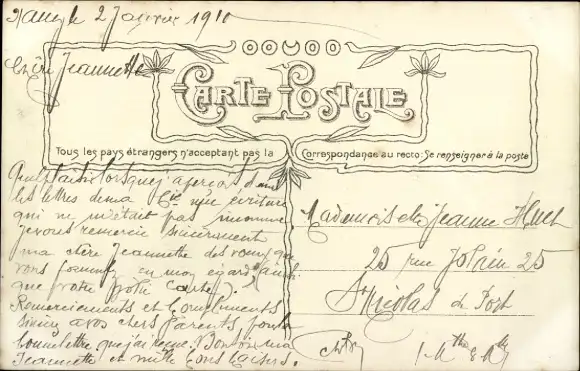 Nancy le 2 Janvier 1910
Chère Jeannette
CARTE POSTALE
Tous les pays étrangers n'acceptant pas la Correspondance au recto: Se renseigner à la poste
Quel plaisir lorsque j'aperçois dans
les lettres de ma Cie une écriture
qui ne m'était pas inconnue
je vous remercie sincèrement
ma chère Jeannette des vœux que
vous formulez en mon égard ainsi
que votre jolie carte.
Remerciements et Compliments
sincères à vos chers Parents, pour la
bonne lettre que j'ai reçue. Bonsoir ma
Jeannette et mille bons baisers.
Mademoiselle Jeanne
25 rue Jolain 25
St Nicolas de Port